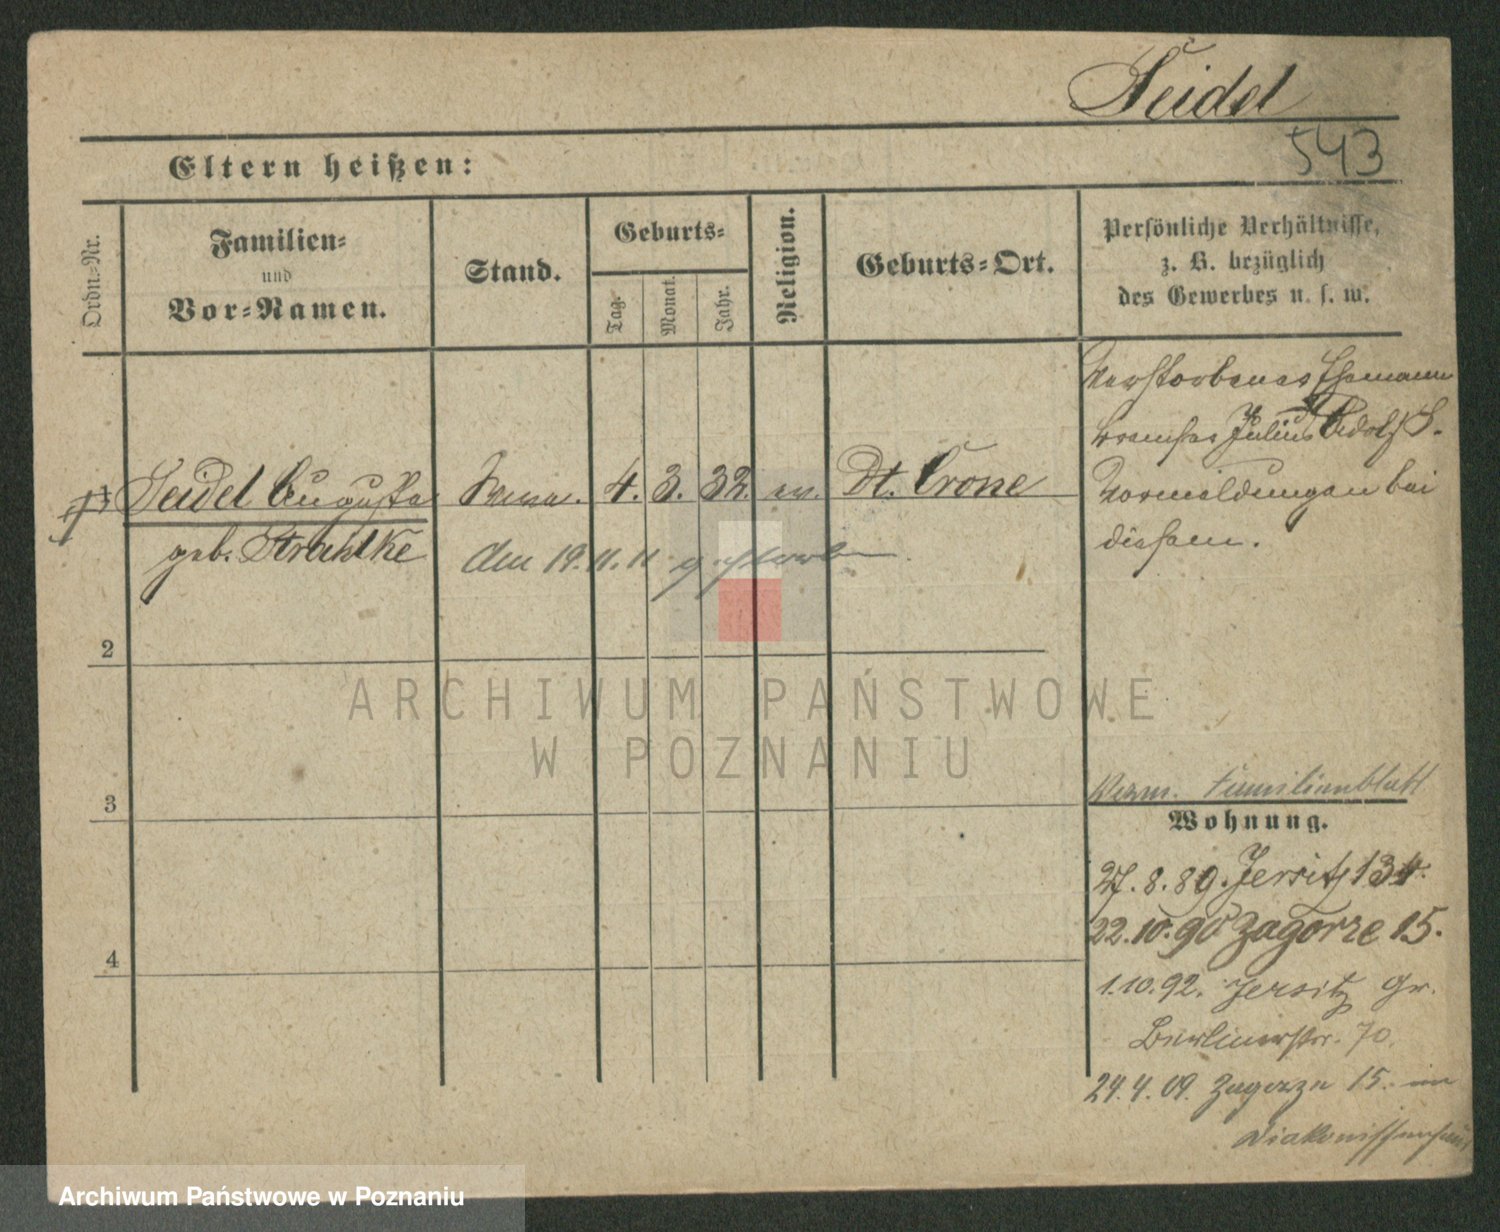 Seidel
543
Eltern heißen:
Ordn.-Nr.
Familien-
und
Vor-Namen.
Stand.
Geburts-
Tag.
Monat.
Jahr.
Religion.
Geburts-Ort.
Persönliche Verhältnisse,
z. B. bezüglich
des Gewerbes u. s. w.
Verstorbener Ehemann
Julius Adolf S.
Vermeldungen bei
diesem.
1 Seidel Auguste Wwe. 4. 3. 32. ev. Dt. Crone
geb. Strahlke den 19.11.11 gestorben.
2
3
4
ARCHIWUM PAŃSTWOWE
W POZNANIU
Verm. Familienblatt
Wohnung.
27.8.89. Jersitz 134.
22.10.90 Zagorze 15.
1.10.92. Jersitz Gr.
Berlinerstr. 70.
24.4.09. Zagorze 15. im
Diakonissenhaus
Archiwum Państwowe w Poznaniu